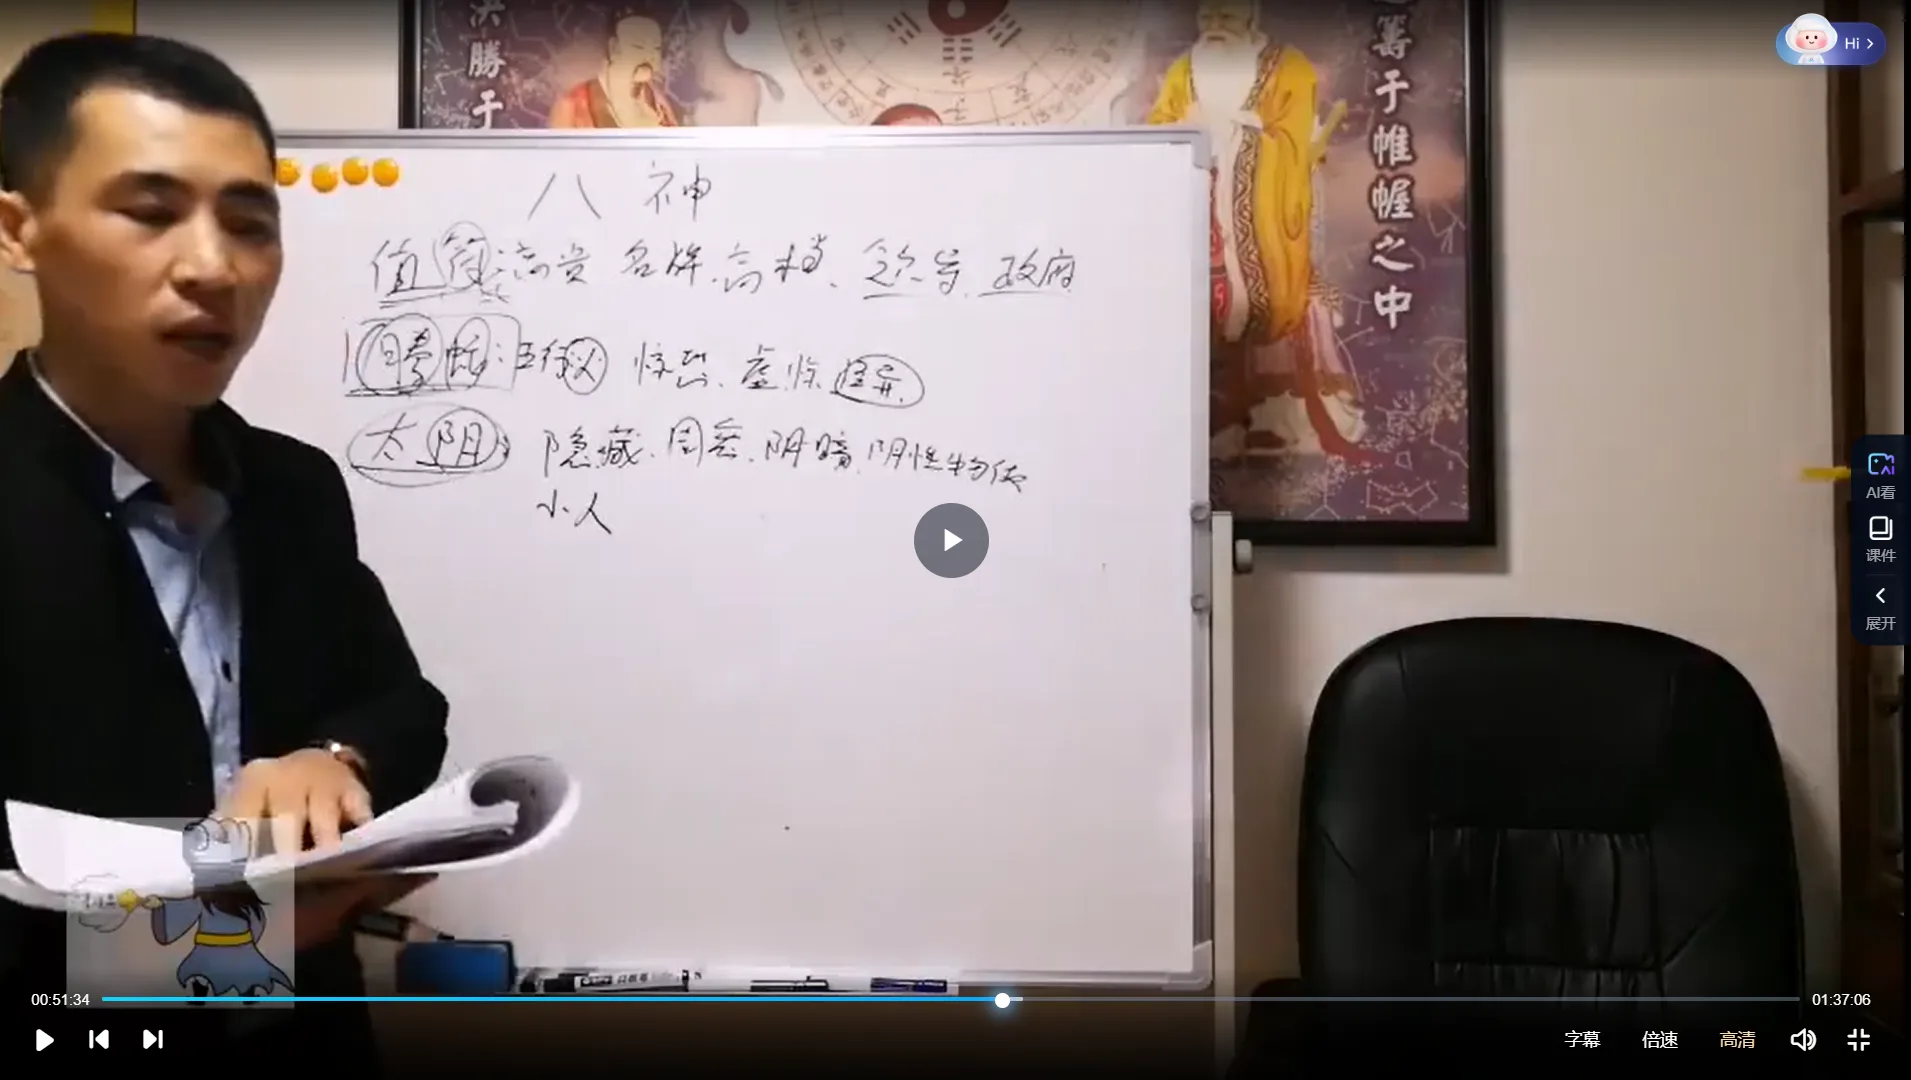 决勝千
运筹于帷幄之中
Hi
八 神
值符:高贵 名牌.高档.领导.政府
腾蛇:五行火 惊恐.虚惊怪异.
太阴: 隐藏.周密.阴暗.阴性物体
小人
AI看
课件
展开
00:51:34
01:37:06
字幕 倍速 高清